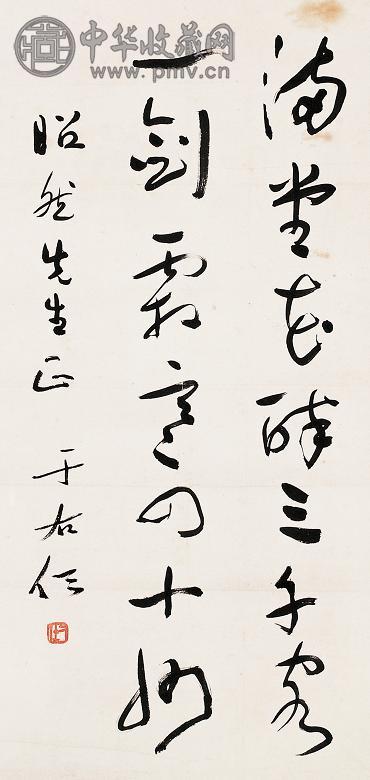 中华收藏网
www.pmv.cn
滿堂花醉三千客
一劍霜寒四十州
昭然先生正 于右任